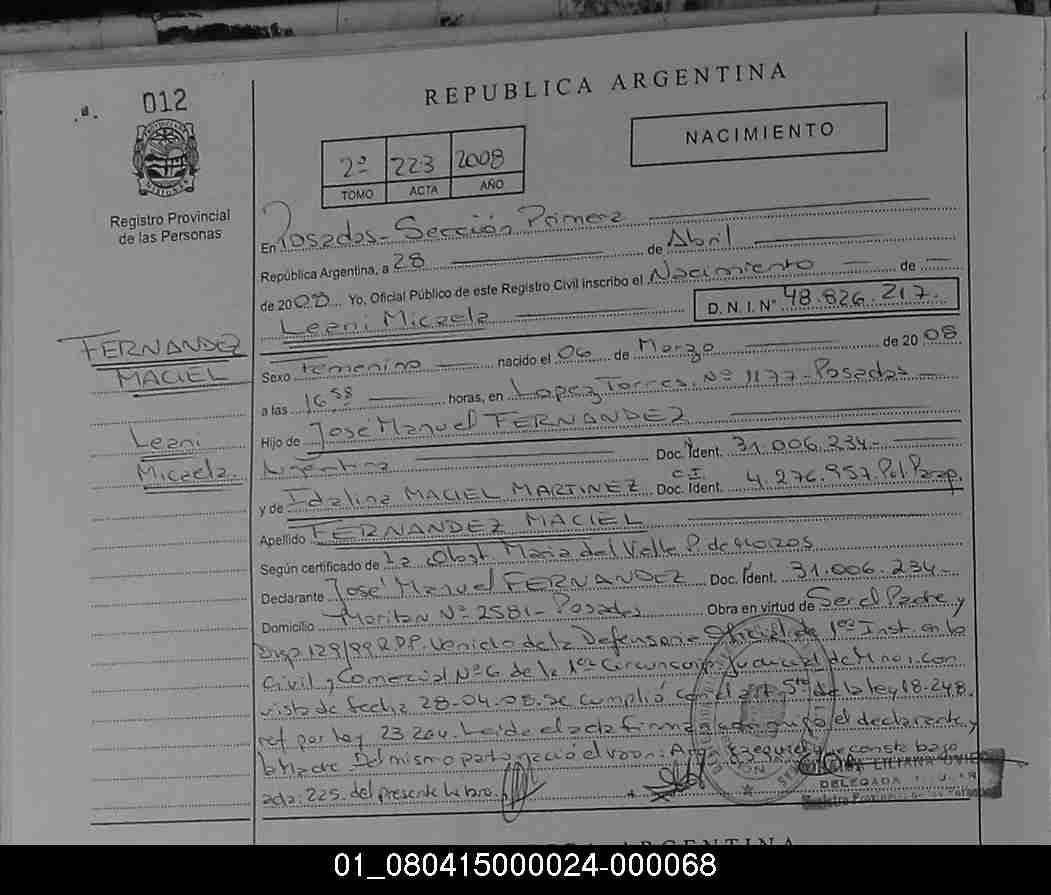 012
REPUBLICA ARGENTINA
NACIMIENTO
2º 223 2008
TOMO ACTA AÑO
Registro Provincial
de las Personas
En Posadas - Sección Primera
República Argentina, a 28 de Abril
de 2008 Yo, Oficial Público de este Registro Civil inscribo el Nacimiento de
Leani Micaela D.N.I. Nº 48.826.217.
FERNANDEZ
MACIEL
Leani
Micaela.
Sexo Femenino nacido el 06 de Marzo de 2008
a las 16 55 horas, en Lopez Torres. Nº 1177 - Posadas
Hijo de José Manuel FERNANDEZ
Argentina Doc. Ident. 31.006.234.-
y de Idalina MACIEL MARTINEZ C.I. Doc. Ident. 4.276.957. Pol. Parag.
Apellido FERNANDEZ MACIEL
Según certificado de La Obst. Maria del Valle P. de
Declarante José Manuel FERNANDEZ Doc. Ident. 31.006.234.-
Domicilio Nº 2581 - Posadas Obra en virtud de Ser el Padre y
Disp 129/99 R.P.P. Venido de la Defensoria Oficial de 1era Inst. en lo
Civil y Comercial Nº 6 de la 1era Circunscrip. Judicial de Mnes, con
vista de fecha 28-04-08. se cumplió con el art 5to de la ley 18.248.
ref por ley 23.264. Leida el acta firman con el declarante y
la Madre Del mismo parto nació el varon: Ezequiel que consta bajo
acta: 225. del presente Libro.
LILIANA
DELEGADA TITULAR
Registro Provincial de las Personas
REPUBLICA ARGENTINA
01_080415000024-000068